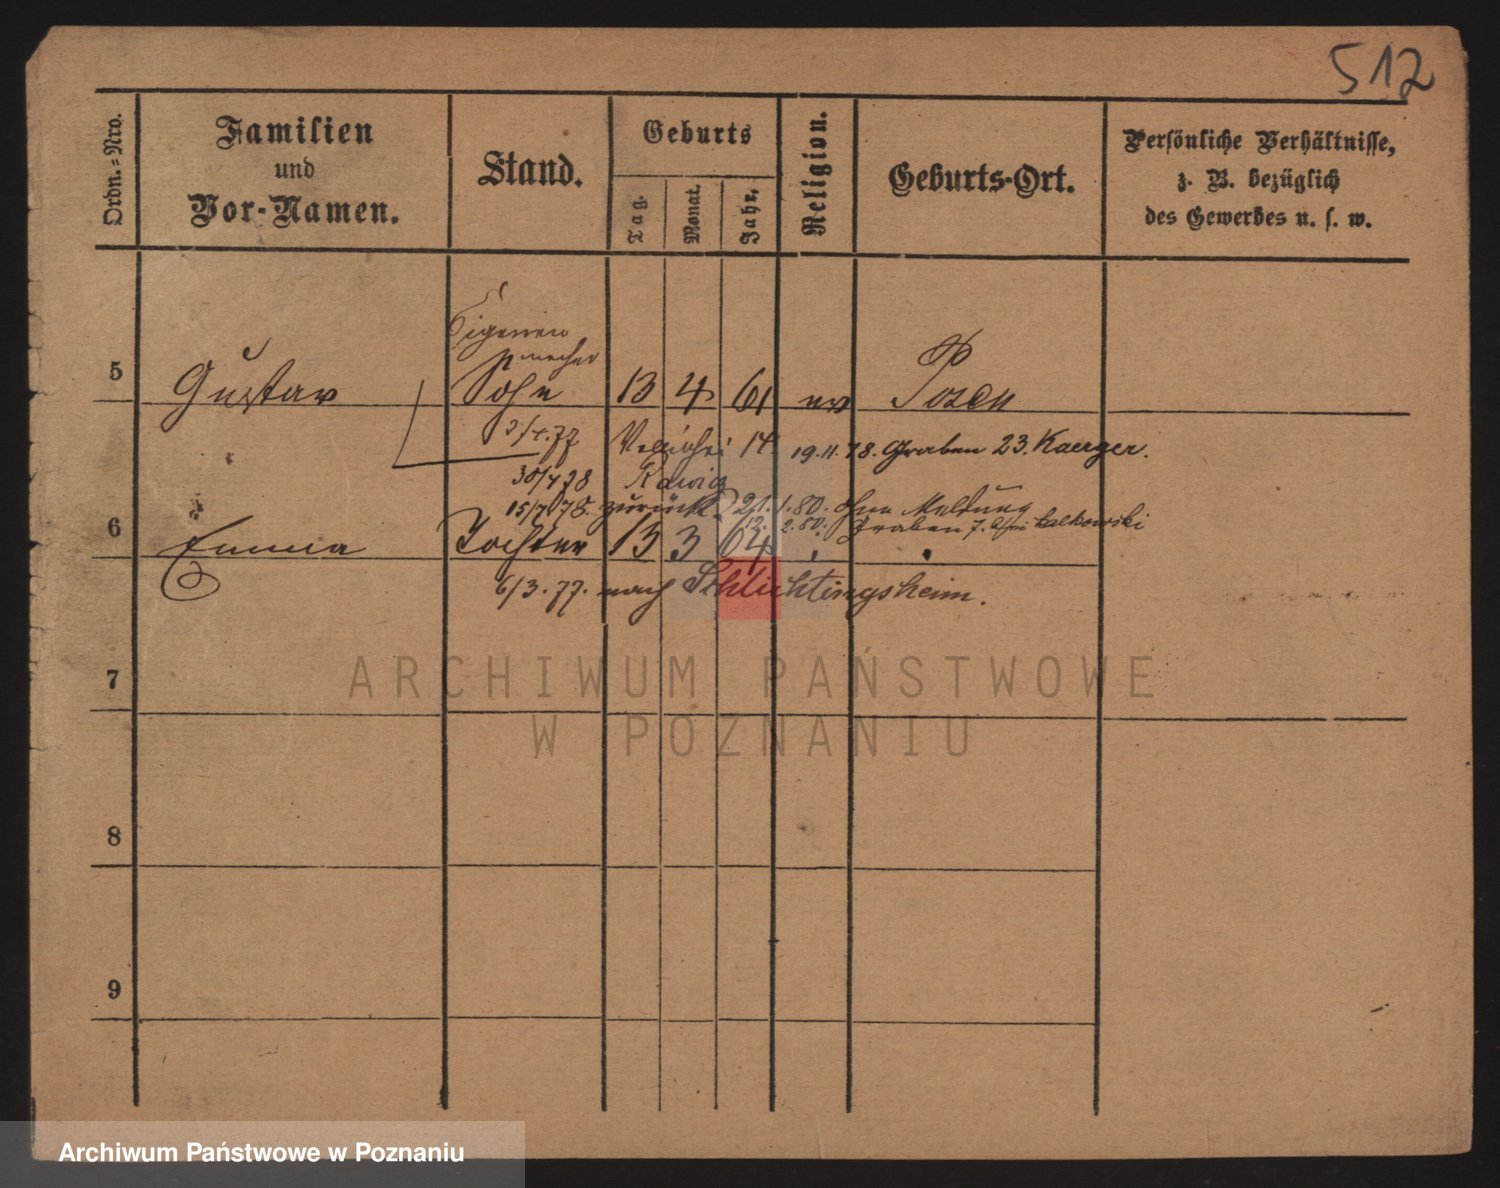 512
Ordn.=Nro.
Familien
und
Vor-Namen.
Stand.
Geburts
Tag.
Monat.
Jahr.
Religion.
Geburts-Ort.
Persönliche Verhältnisse,
z. B. bezüglich
des Gewerbes u. s. w.
5 Gustav Sohn 13 4 61 ev Posen
14. 19.11.78. Graben 23. Kaerger.
30/4 78 Rawicz
15/7 78. zurück. 21.1.80. ohne Meldung
12. 2.80. Graben 7. bei Kalkowski
6 Emma Tochter 13 3 64
6/3.77. nach Schlichtingsheim.
7
8
9
ARCHIWUM PAŃSTWOWE
W POZNANIU
Archiwum Państwowe w Poznaniu